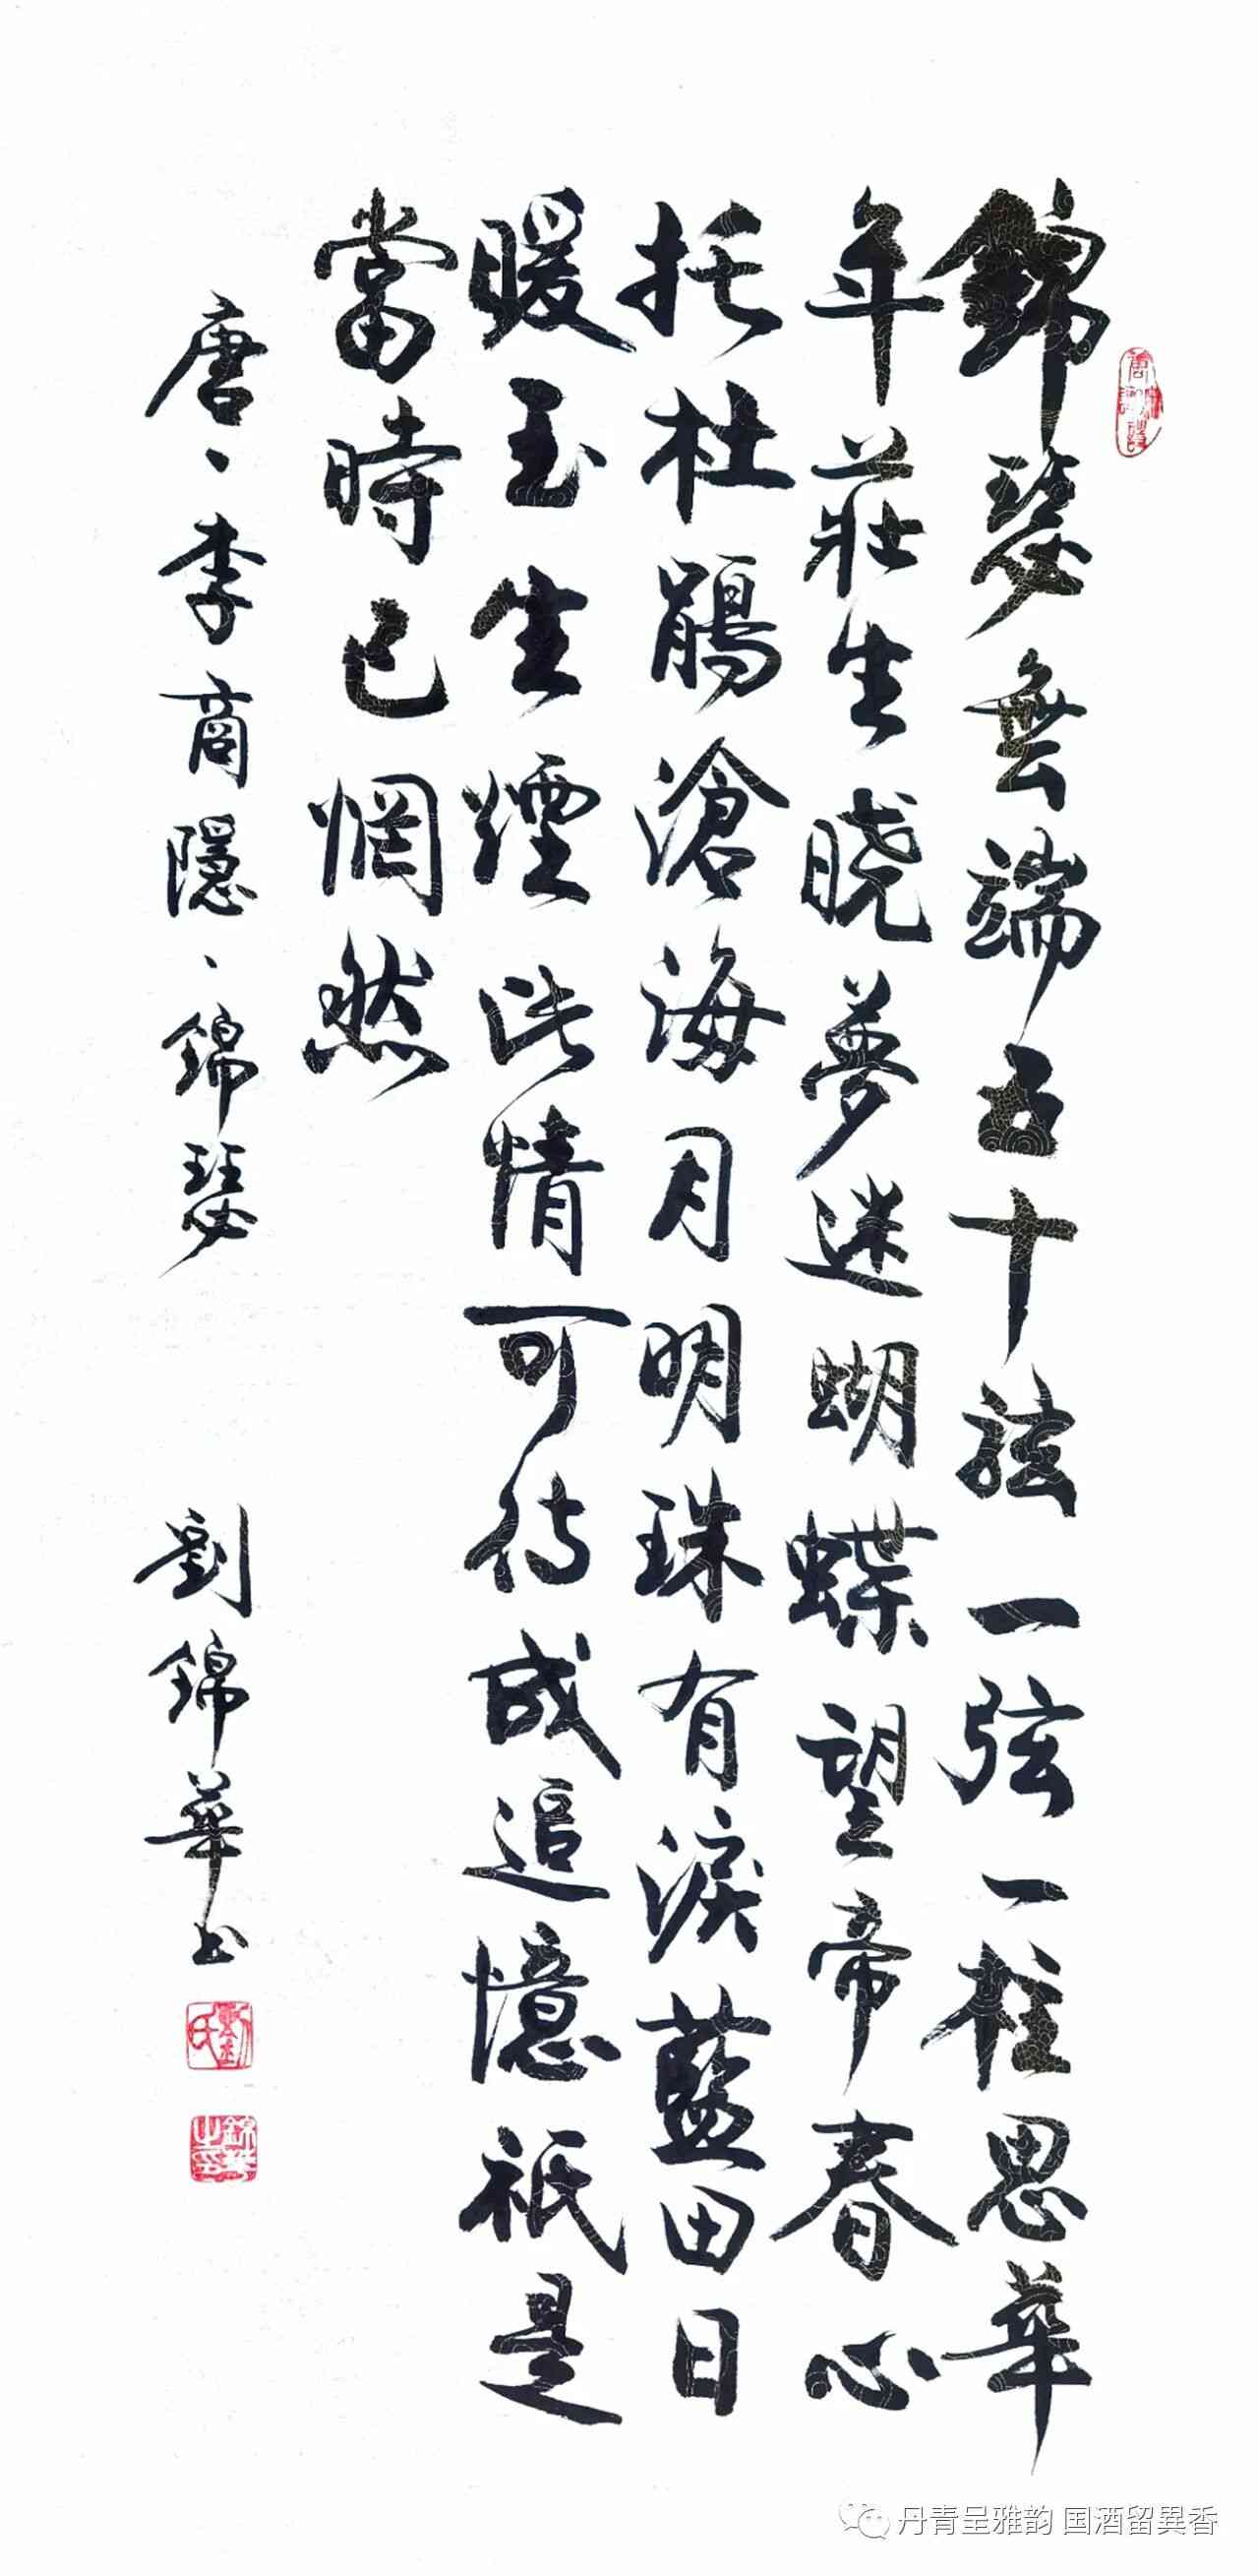 錦瑟無端五十絃一弦一柱思華
年莊生曉夢迷蝴蝶望帝春心
托杜鵑滄海月明珠有淚藍田日
暖玉生煙此情可待成追憶祇是
當時已惘然
唐、李商隱、錦瑟
劉錦華书
劉氏
錦華之印
丹青呈雅韵 国酒留異香